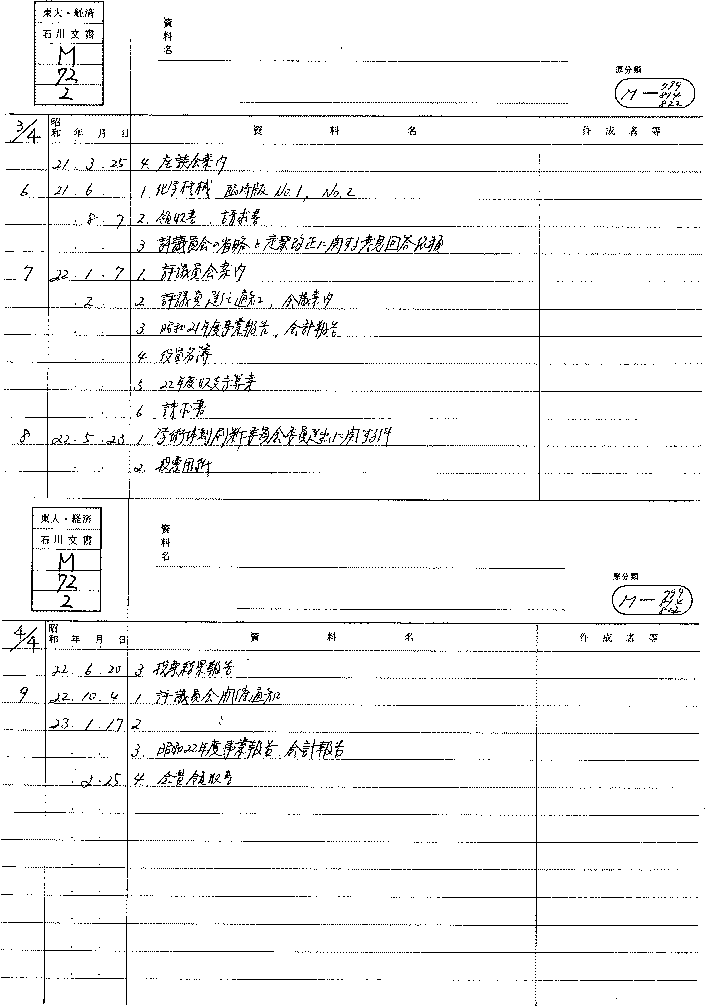 東大・経済
石川文書
M
72
2
資料名
原分類
M－
822
3/4 昭和 年 月 日 資料名 作成者等
21. 3. 25 4. 座談会案内
6 21. 6. 1. 化学機械 臨時版 No.1, No.2
8. 7 2. 領収書 請求書
3. 評議員会の省略と定款改正に関する意見回答依頼
7 22. 1. 7 1. 評議員会案内
2. 2. 評議員選任通知、会議案内
3. 昭和21年度事業報告、会計報告
4. 役員名簿
5. 22年度収支予算案
6. 請求書
8 22. 5. 23 1. 学術体制刷新委員会委員選出に関する件
2. 投票用紙
東大・経済
石川文書
M
72
2
資料名
原分類
M－
4/4 昭和 年 月 日 資料名 作成者等
22. 6. 20 3. 投票結果報告
9 22. 10. 4 1. 評議員会開催通知
23. 1. 17 2 〃
3. 昭和22年度事業報告 会計報告
2. 25 4. 会費領収書